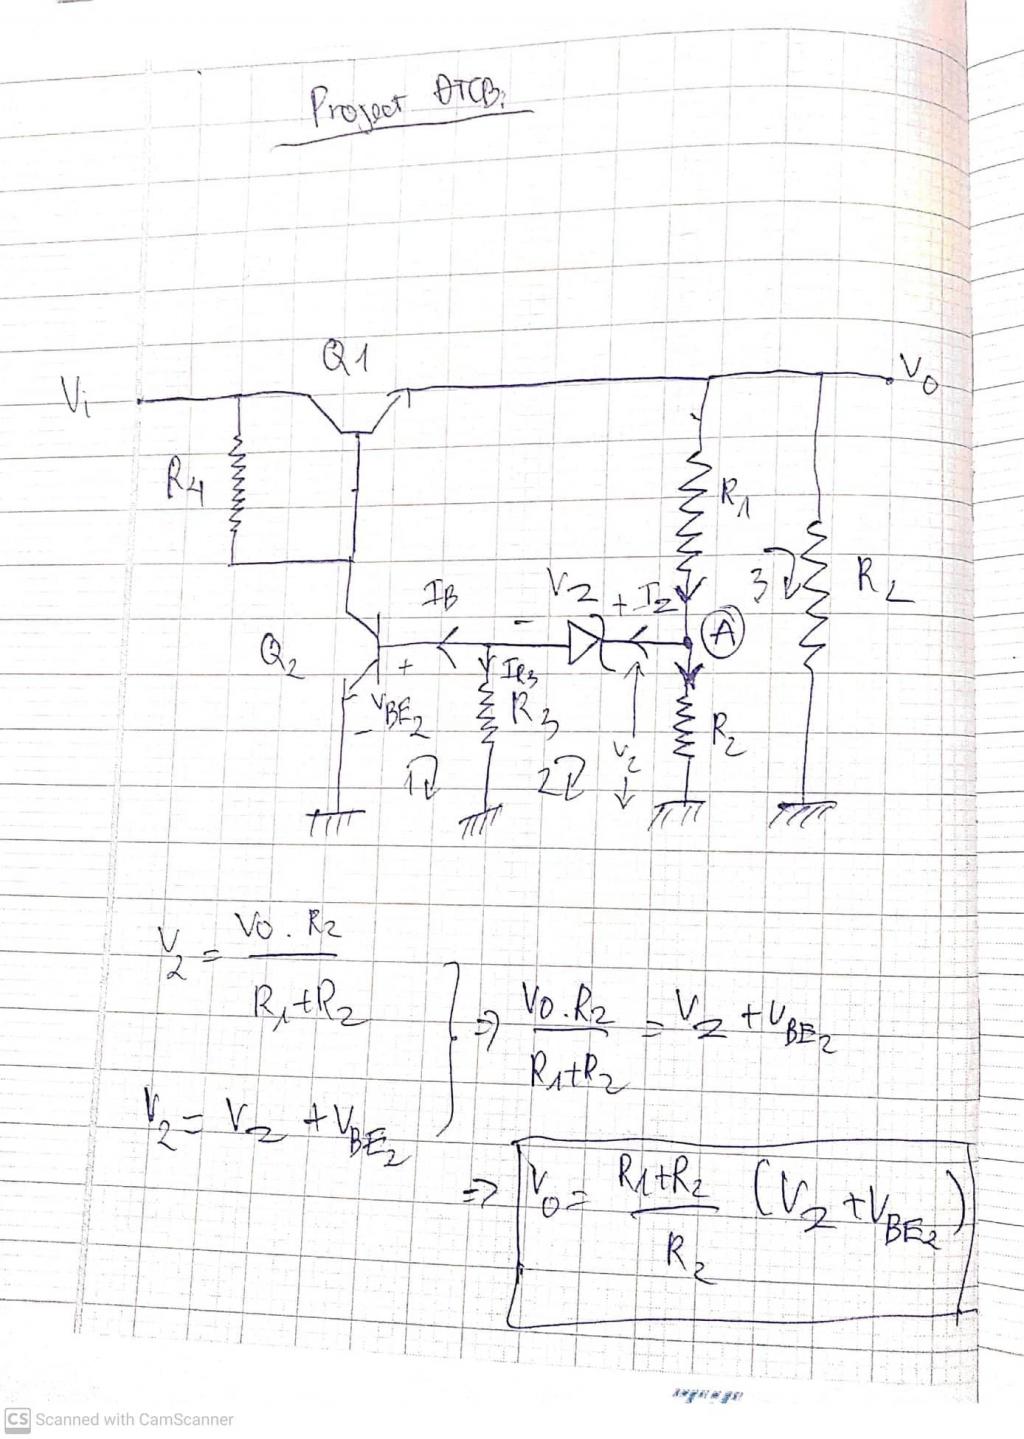 Project DTCB:
Q1
Vi
Vo
R4
R1
IB
VZ
+ IZ
3
RL
A
Q2
-
+
IR3
VBE2
-
R3
R2
V2
1
2
V2 = Vo . R2 / R1+R2
V2 = VZ + VBE2
=> Vo . R2 / R1+R2 = VZ + VBE2
=> Vo = R1+R2 / R2 (VZ + VBE2)
CS Scanned with CamScanner